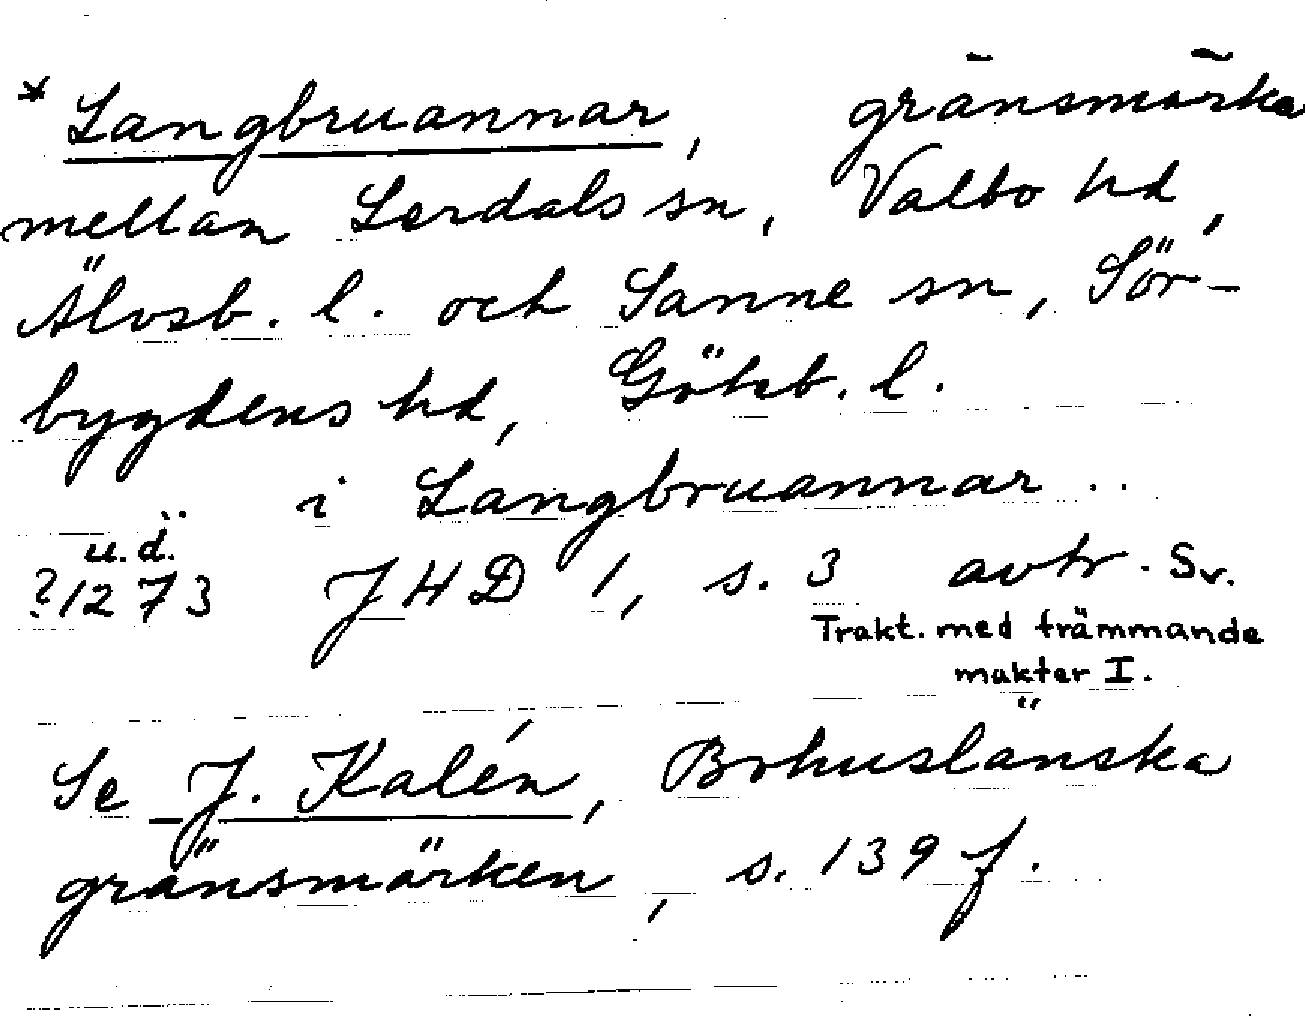 * Langbruannar, gränsmärke
mellan Lerdals sn, Valbo hd,
Älvsb. l. och Sanne sn, Sör-
bygdens hd, Göteb. l.
i Langbruannar ..
u.d.
?1273 JHD 1, s. 3 avtr. Sv.
Trakt. med främmande
makter I.
Se J. Kalén, Bohuslänska
gränsmärken, s. 139 f.